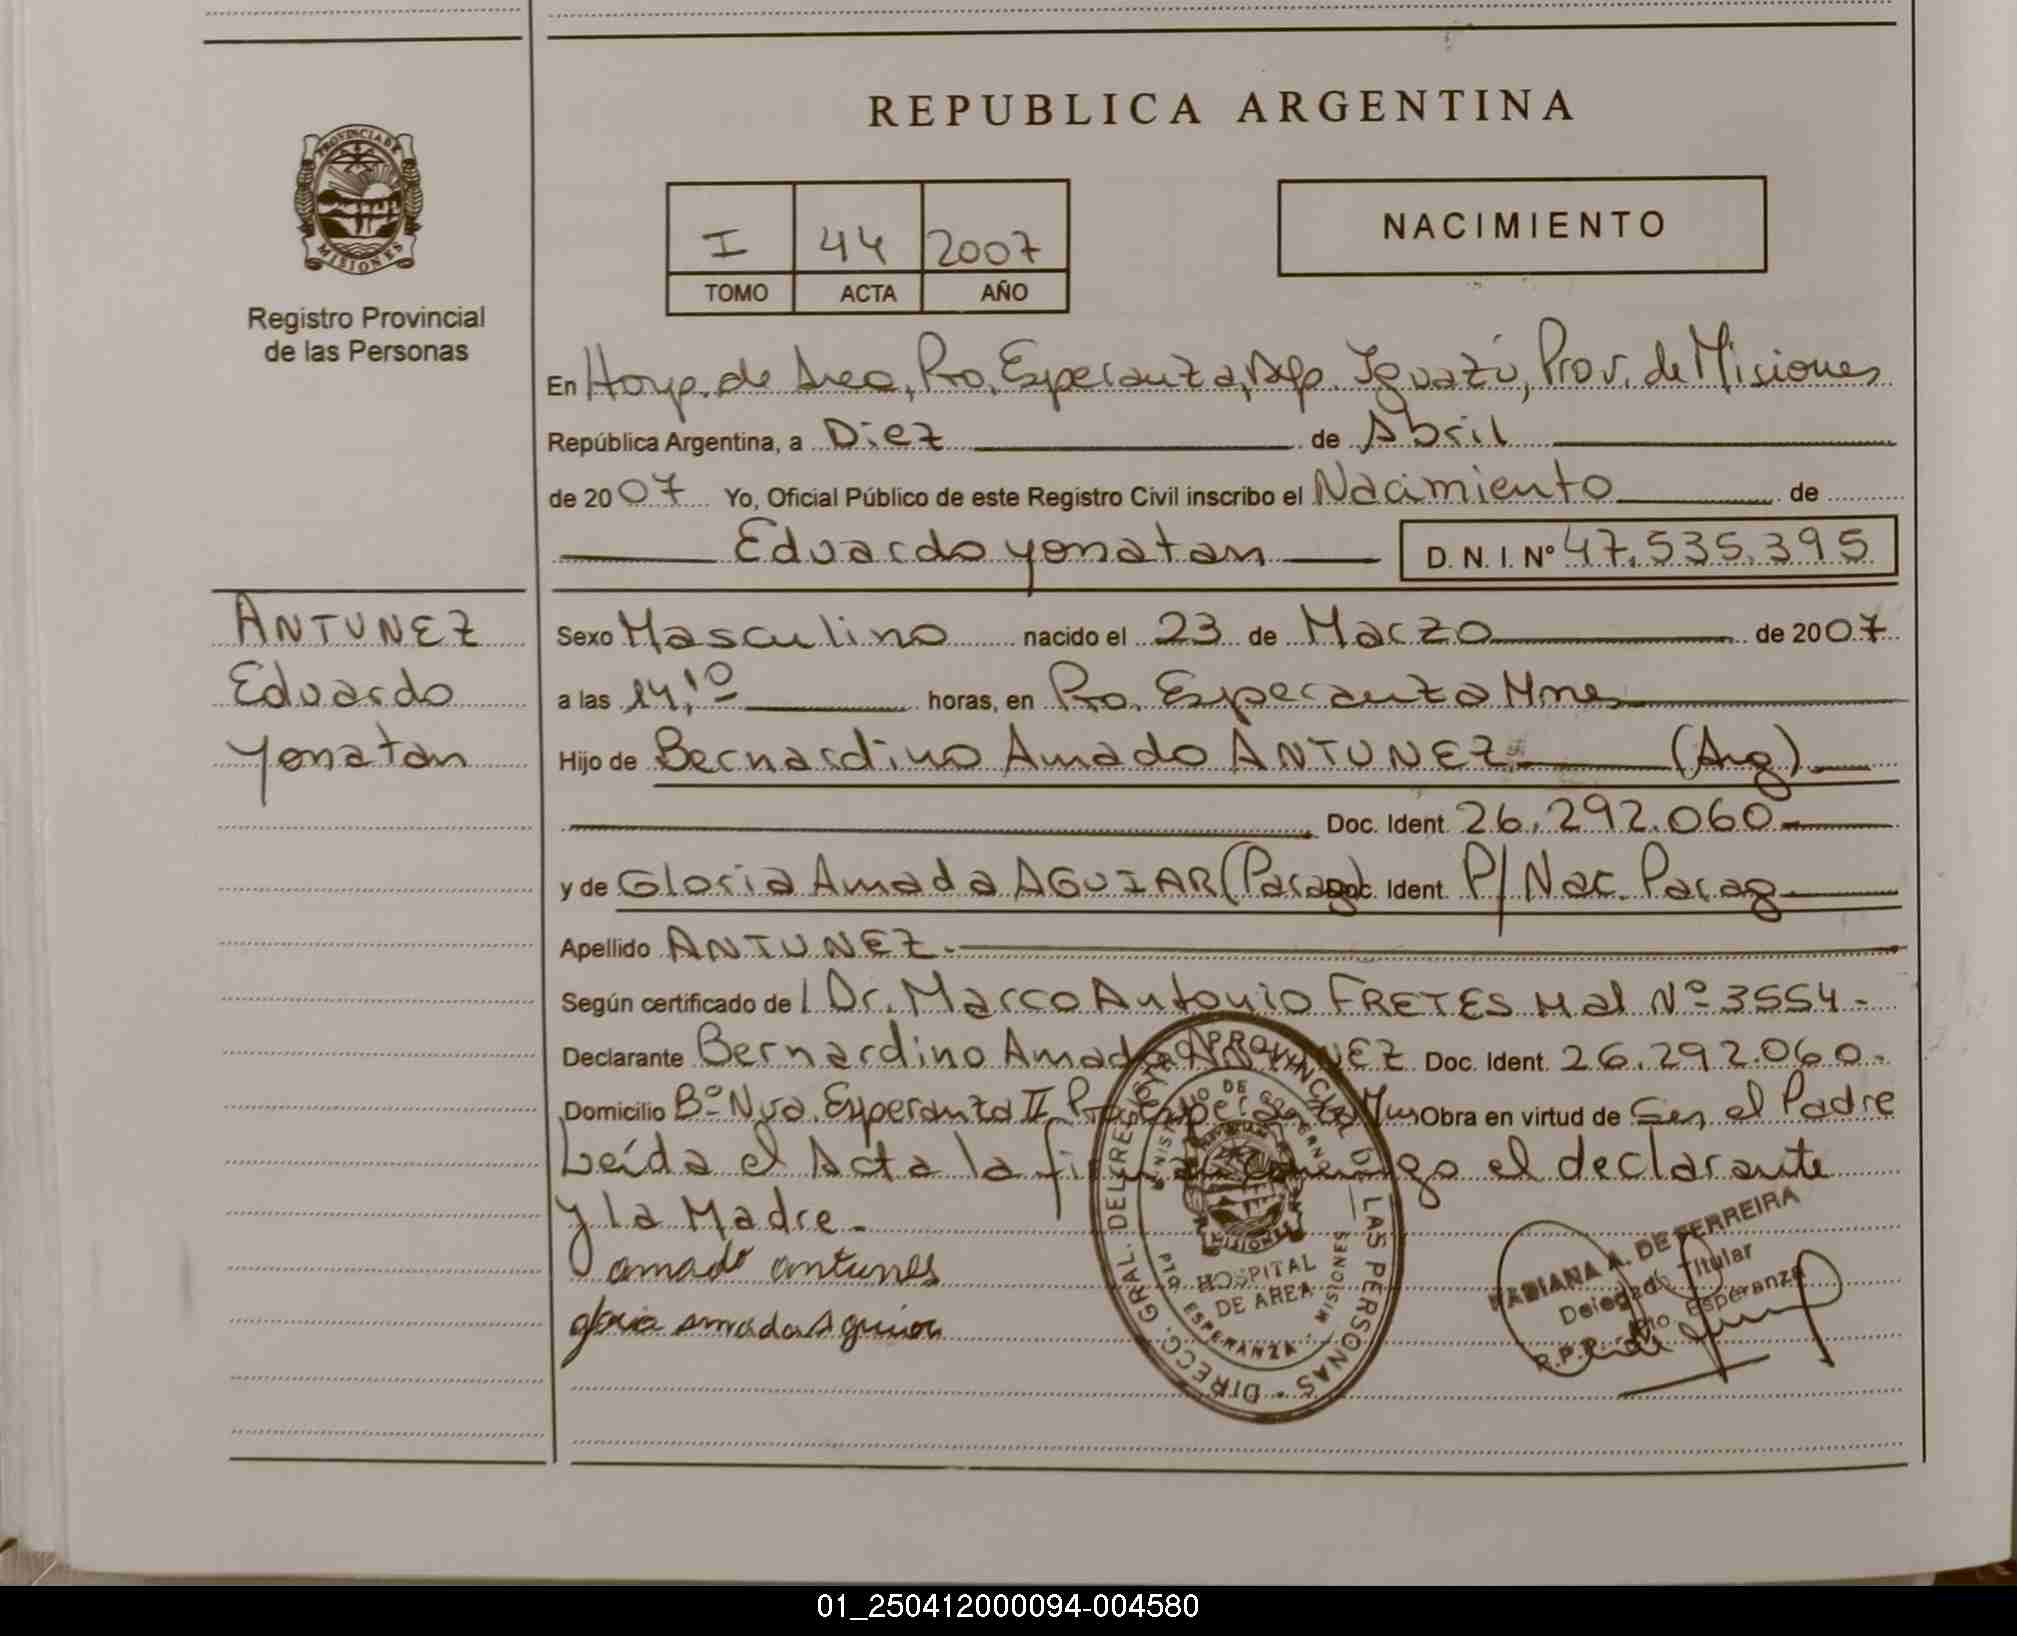 REPUBLICA ARGENTINA
PROVINCIA DE MISIONES
Registro Provincial
de las Personas
I 44 2007
TOMO ACTA AÑO
NACIMIENTO
En Hosp. de Area, Pto. Esperanza, Dep. Iguazú, Prov. de Misiones
República Argentina, a Diez de Abril
de 2007 Yo, Oficial Público de este Registro Civil inscribo el Nacimiento de
Eduardo Yonatan D. N. I. Nº 47.535.395
ANTUNEZ
Eduardo
Yonatan
Sexo Masculino nacido el 23 de Marzo de 2007
a las 14,10 horas, en Pto. Esperanza Mnes
Hijo de Bernardino Amado ANTUNEZ (Arg)
Doc. Ident. 26.292.060
y de Gloria Amada AGUIAR (Parag) Doc. Ident. P/ Nac. Parag
Apellido ANTUNEZ.
Según certificado de l Dr. Marco Antonio FRETES Mal Nº 3554-
Declarante Bernardino Amado ANTUNEZ Doc. Ident. 26.292.060-
Domicilio Bº Nva. Esperanza II Pto Esperanza Mns Obra en virtud de Ser el Padre
Leída el Acta la firman conmigo el declarante
y la Madre.
amado antunes
gloria amada Aguiar
DIRECC. GRAL. DEL REGISTRO PROVINCIAL DE LAS PERSONAS
MINISTERIO DE GOBIERNO
MISIONES
HOSPITAL
DE AREA
ESPERANZA - MISIONES
FABIANA A. DE FERREIRA
Delegada Titular
R.P.P. Pto Esperanza
01_250412000094-004580